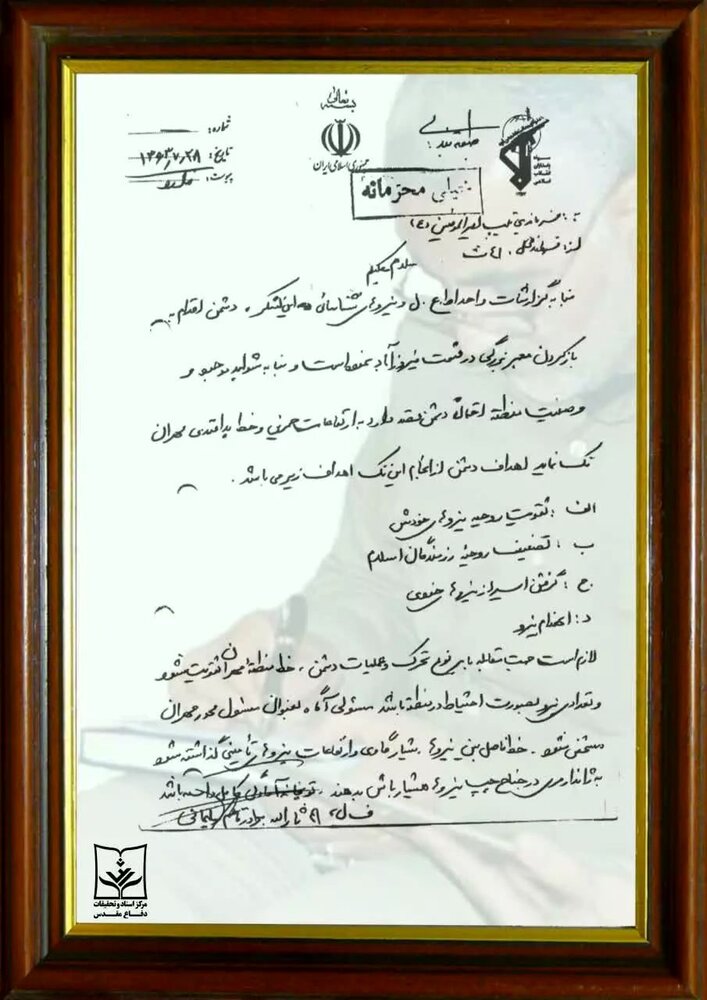 بسمه تعالی
جمهوری اسلامی ایران
شماره:
تاریخ: ۱۳۶۳/۷/۲۸
پیوست:
سپاه پاسداران انقلاب اسلامی
خیلی محرمانه
به: فرماندهی امیرالمؤمنین (ع)
از: فرماندهی ل ۴۱ ث
سلام علیکم
بنا به گزارشات واحد اطلاع ل و نیروهای شناسائی این لشکر، دشمن اقدام به
باز کردن معبر بزرگی در قسمت فیروزآباد نموده است و بنا به شواهد موجود و
وضعیت منطقه احتمالا دشمن قصد دارد به ارتفاعات و خط پدافندی مهران
تک نماید اهداف دشمن از انجام این تک اهداف زیر می باشد.
الف: تقویت روحیه نیروهای خودش
ب: تضعیف روحیه رزمندگان اسلام
ج: گرفتن اسیر از نیروهای خودی
د: انهدام نیرو
لازم است جهت مقابله با هر نوع تحرک و عملیات دشمن، خط منطقه مهران تقویت شود
و تعدادی نیرو بصورت احتیاط در منطقه باشد مسئولی آگاه بعنوان مسئول محور مهران
مشخص شود. خط فاصل بین نیروها شیار گاوی و ارتفاعات نیروی تأمینی گذاشته شود
به ژاندارمری در جناح چپ نیروها هشیار باش بدهند. توپخانه آمادگی کامل داشته باشد
ف ل ۴۱ ثارالله برادر قاسم سلیمانی
مرکز اسناد و تحقیقات
دفاع مقدس